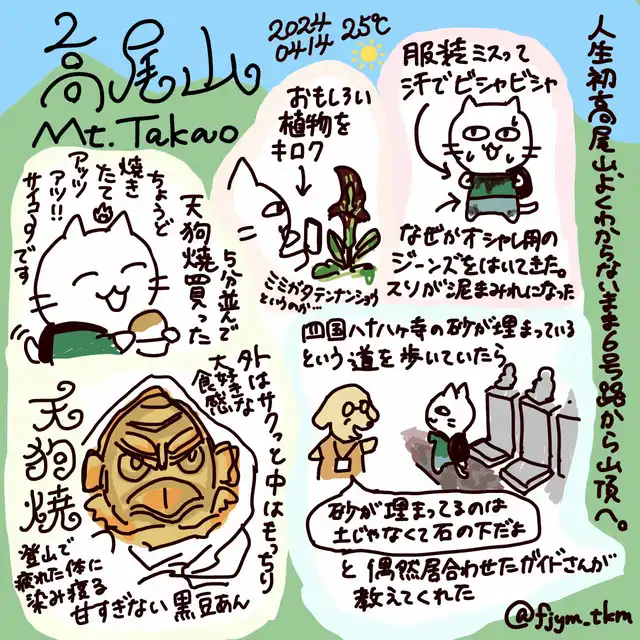 2
高尾山
Mt. Takao
2024
0414
25℃
人生初高尾山、よくわからないまま6号路から山頂へ。
服装ミスって
汗でビシャビシャ
なぜかオシャレ用の
ジーンズをはいてきた。
スソが泥まみれになった
おもしろい
植物を
キロク
ミミガタテンナンショウ
というのが…
5分並んで
天狗焼買った
ちょうど
焼き
たて
アッツ
アツ!!
サイコーです
四国八十八ヶ寺の砂が埋まっている
という道を歩いていたら
砂が埋まってるのは
土じゃなくて石の下だよ
と偶然居合わせたガイドさんが
教えてくれた
天狗焼
外はサクっと中はもっちり
大好きな
食感
登山で
疲れた体に
染み渡る
甘すぎない黒豆あん
@fjym_tkm